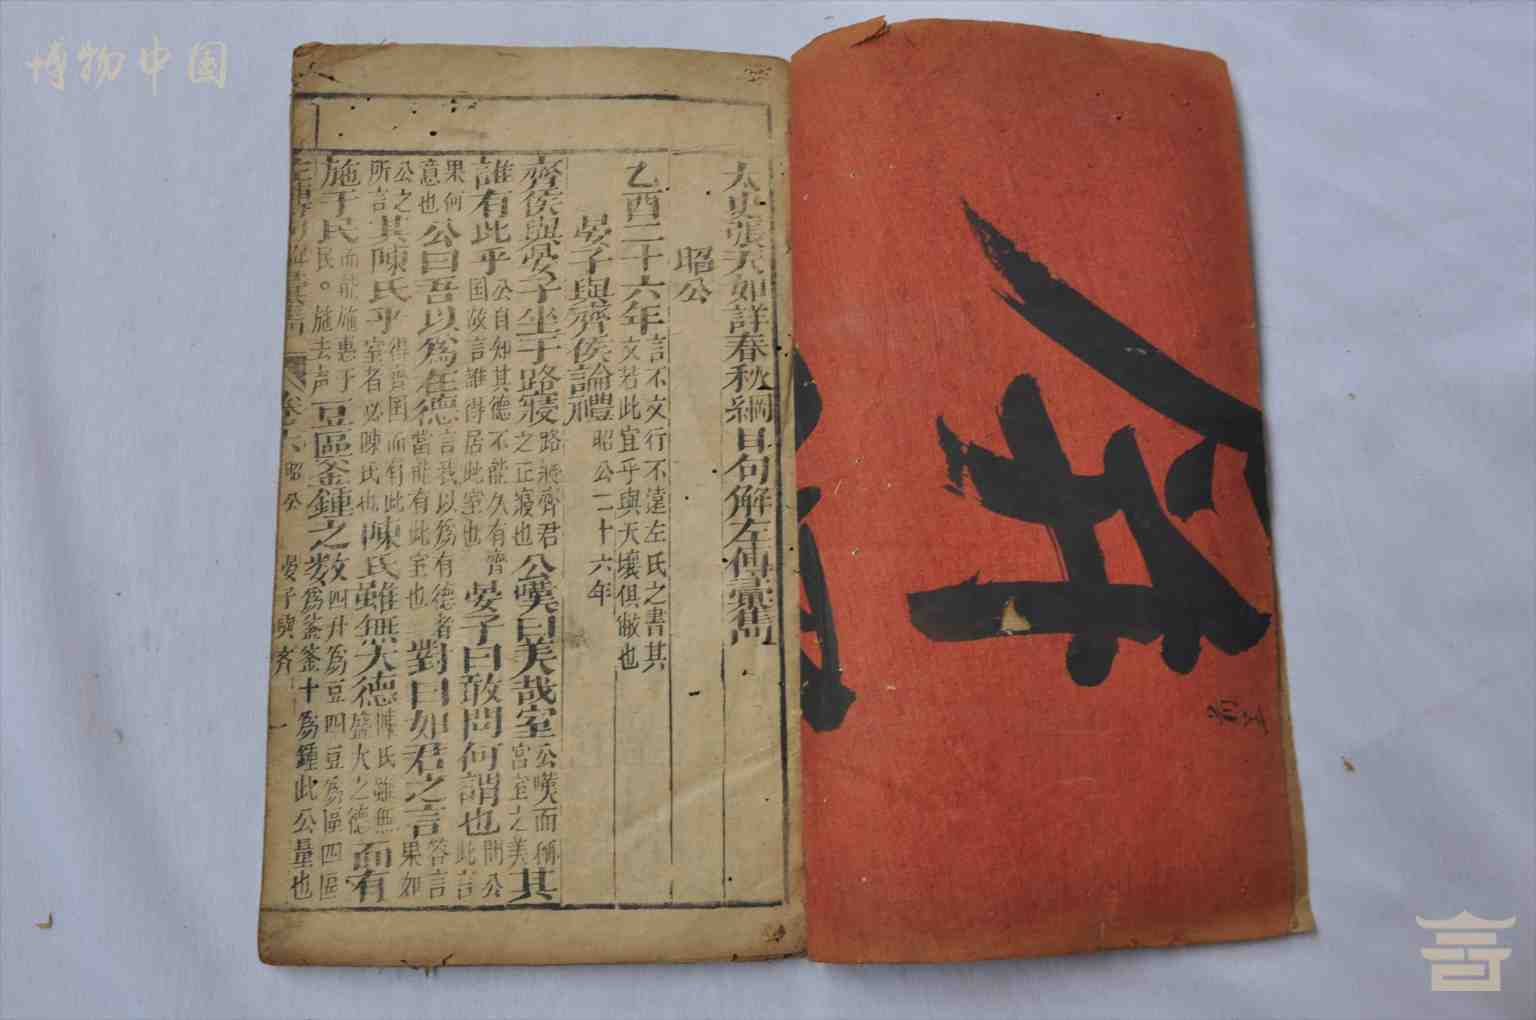 博物中国
太史張天如詳春秋綱目句解左傳彙雋
昭公
乙酉二十六年 言不文行不遠左氏之書其文若此宜乎與天壤俱敝也
晏子與齊侯論禮 昭公二十六年
齊侯與晏子坐于路寢 路寢齊君之正寢也 公嘆曰美哉室 公嘆而稱宮室之美 其
誰有此乎 公自知其德不能久有齊国故言誰得居此室也 晏子曰敢問何謂也 問公此言
果何意也 公曰吾以為在德 言我以為有德者當能有此室也 對曰如君之言 答言果如
公之所言 其陳氏乎 得齊国而有此室者必陳氏也 陳氏雖無大德 陳氏雖無盛大之德 而有
施于民 而能施惠于民。施去声 豆區釜鍾之数 四升為豆四豆為區四區為釜釜十為鍾此公量也
昭公 晏子與齊 一